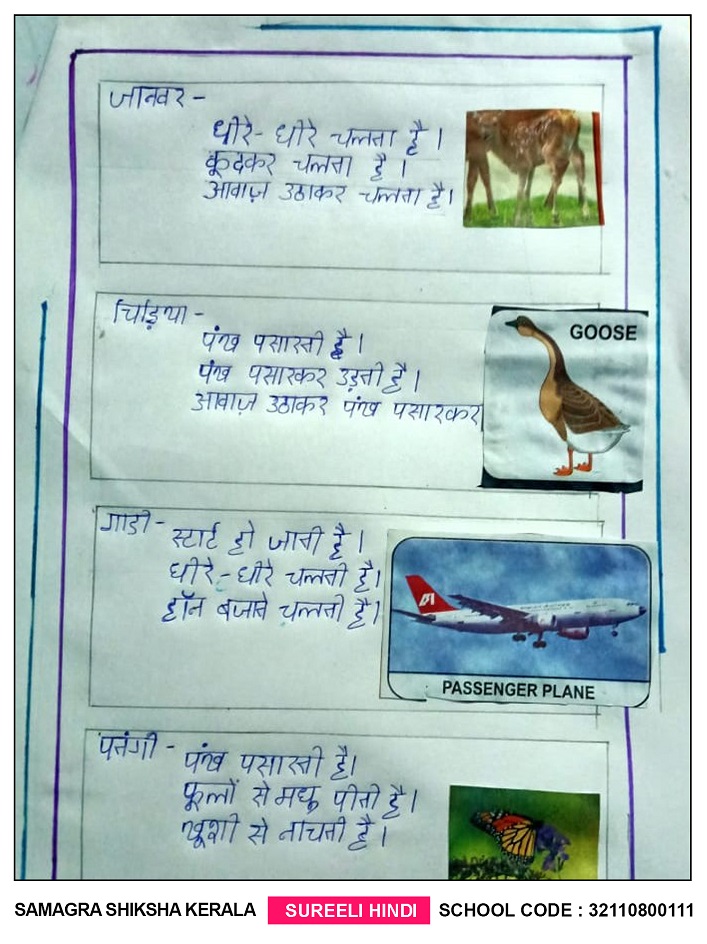 जानवर -
धीरे- धीरे चलता है।
कूदकर चलता है।
आवाज़ उठाकर चलता है।
चिड़िया -
पंख पसारती है।
पंख पसारकर उड़ती है।
आवाज़ उठाकर पंख पसारकर
GOOSE
गाडी -
स्टार्ट हो जाती है।
धीरे - धीरे चलती है।
हॉन बजाने चलती है।
PASSENGER PLANE
पतंगी -
पंख पसारती है।
फूलों से मधू पीती है।
खूशी से नाचती है।
SAMAGRA SHIKSHA KERALA SUREELI HINDI SCHOOL CODE : 32110800111